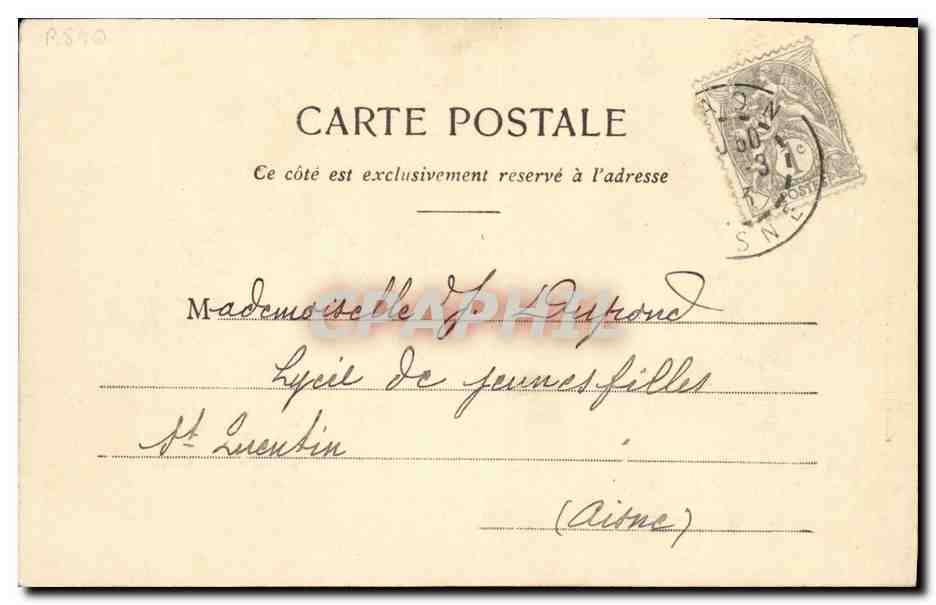 P.890
CARTE POSTALE
Ce côté est exclusivement reservé à l'adresse
1c
POSTES
Mademoiselle J. Dupond
Lycée de jeunes filles
St Quentin
(Aisne)
CPAPHIL